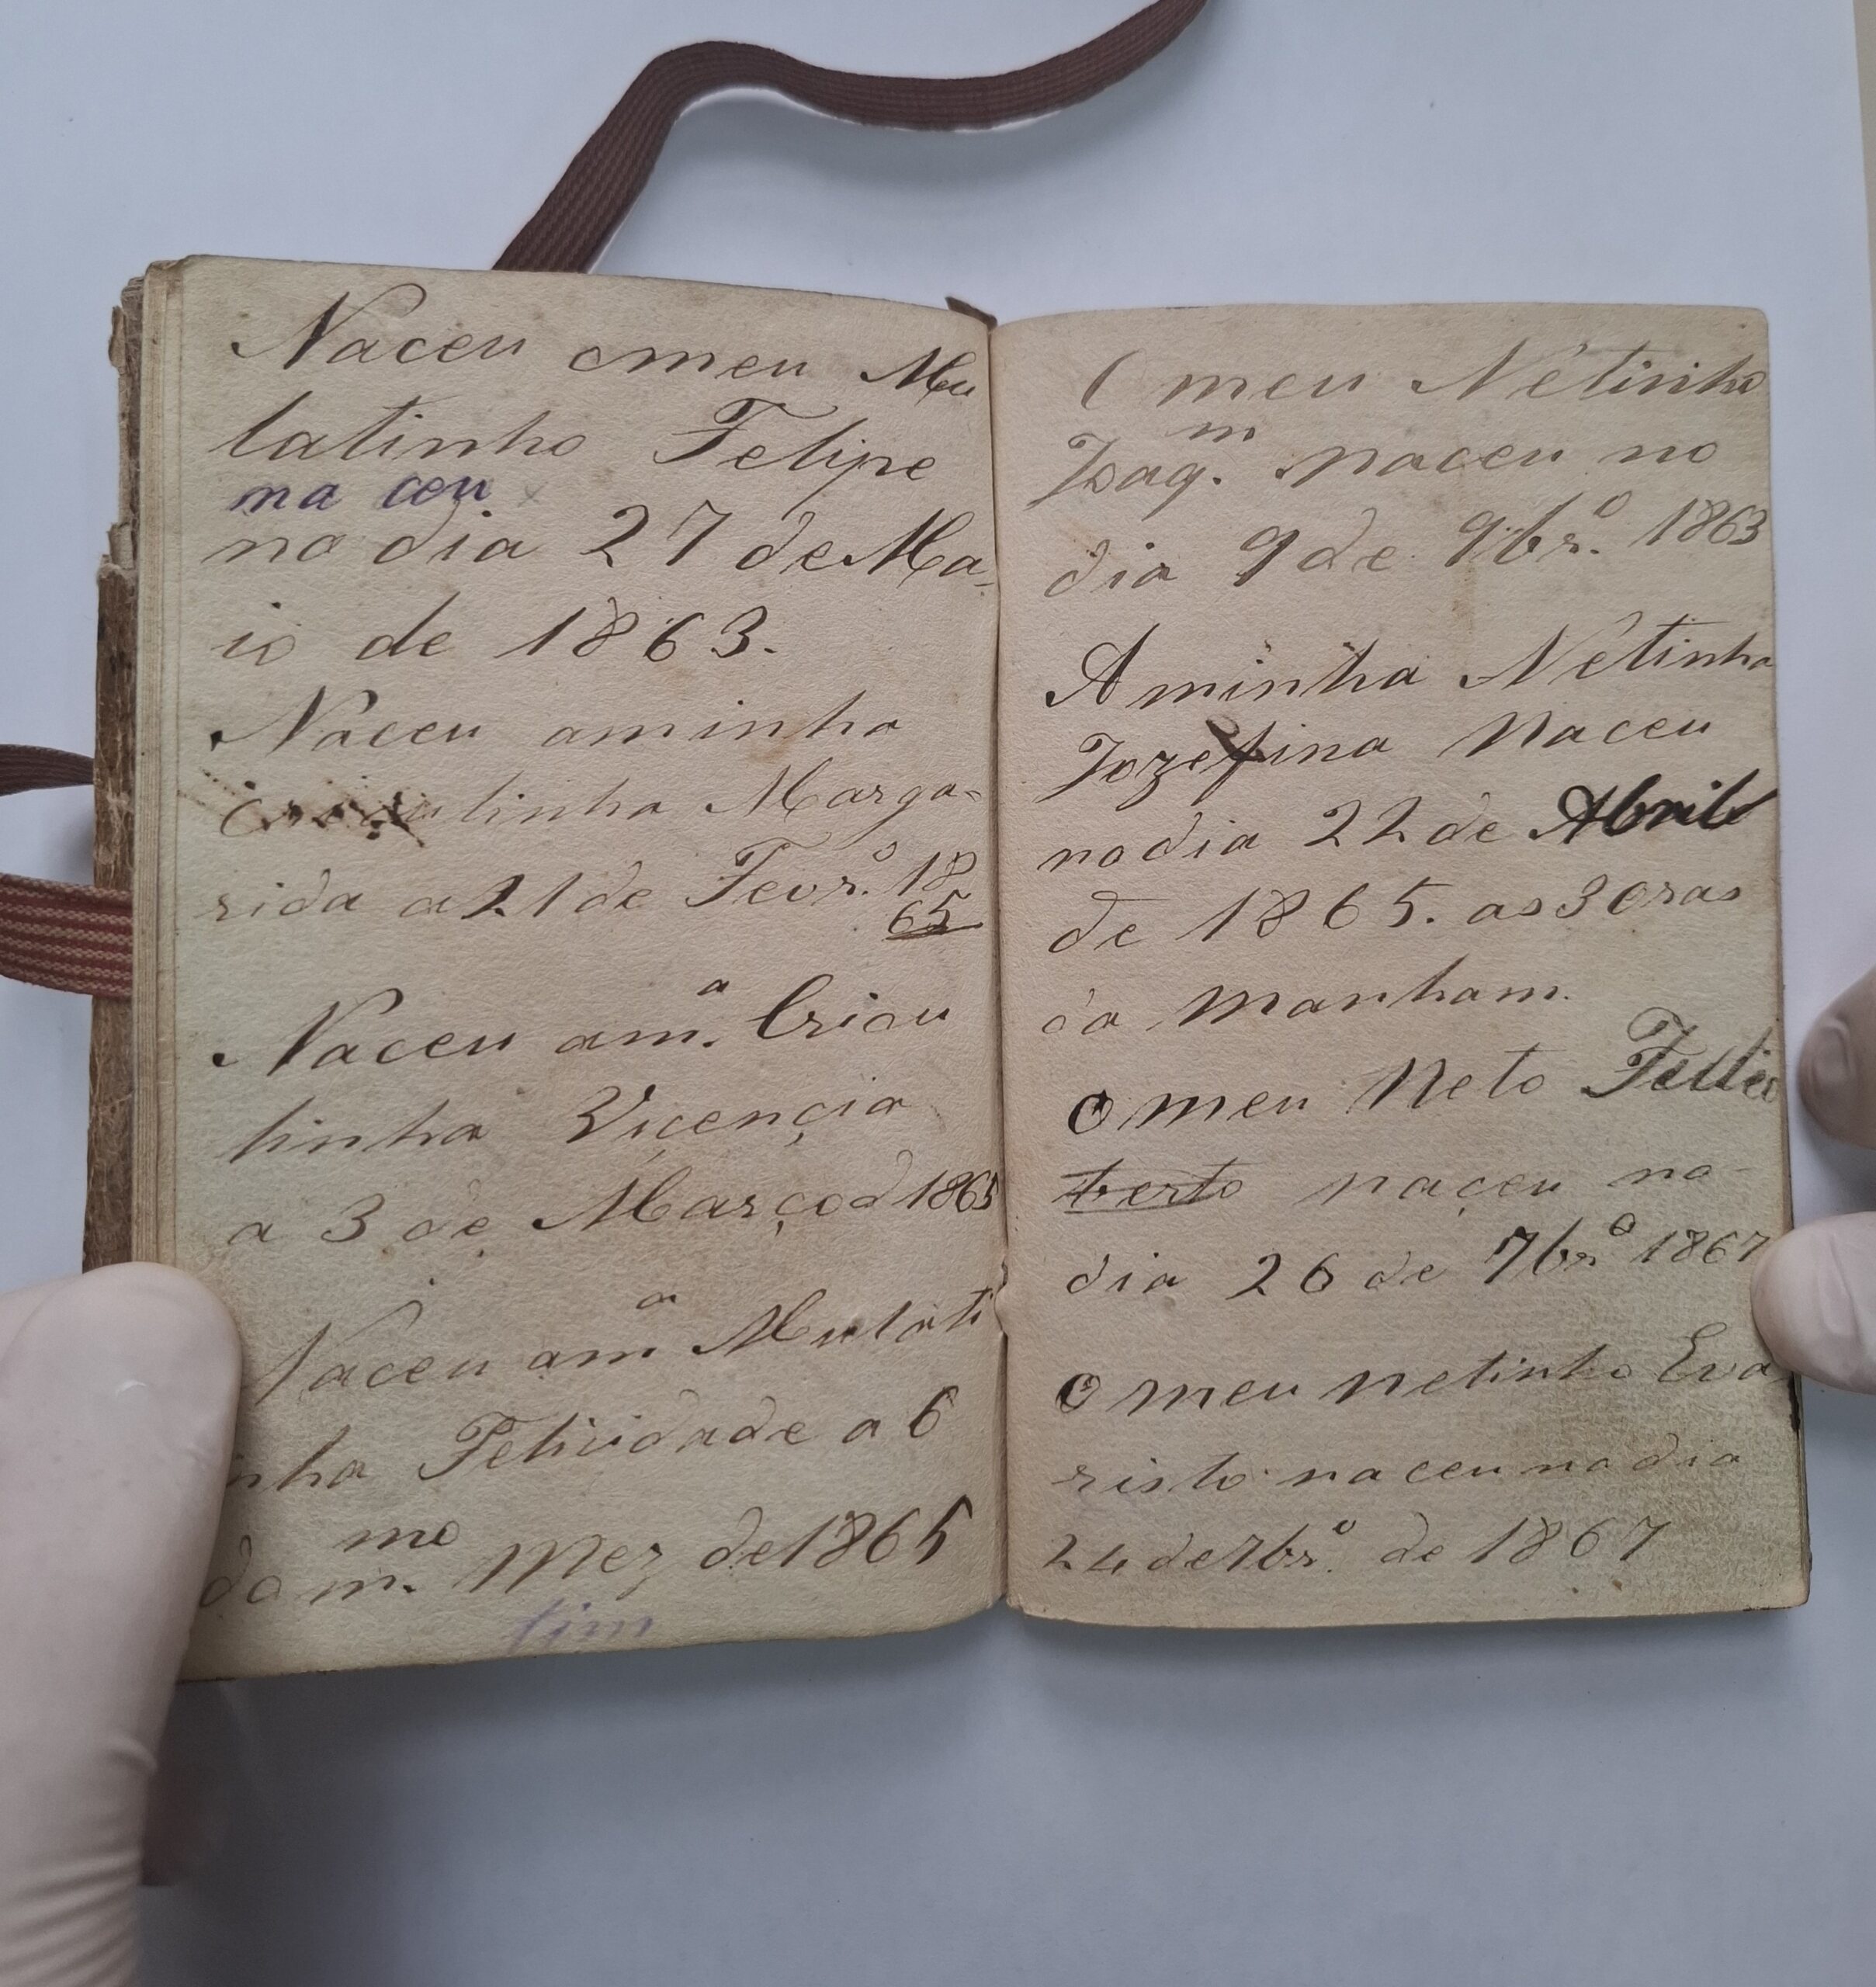 Naceu omeu Mu
latinho Felipe
na ceu
no dia 27 de Ma-
io de 1863.
Naceu aminha
crioulinha Marga-
rida a 21 de Fevr.º 18
65
Naceu am.ª Criou
linha Viçençia
a 3 de Março d 1865
Naceu amª Mulati
nha Felicidade a 6
do m.mo Mez de 1865
fim
O meu Netinho
Joaq.m naceu no
dia 9 de 9br.º 1863
A minha Netinha
Jozefina Naceu
no dia 22 de Abril
de 1865. as 3 Oras
da Manham.
O meu Neto
berto naçeu no
dia 26 de 7brº 1867
O meu netinho Eva
risto naceu no dia
24 de 7br.º de 1867